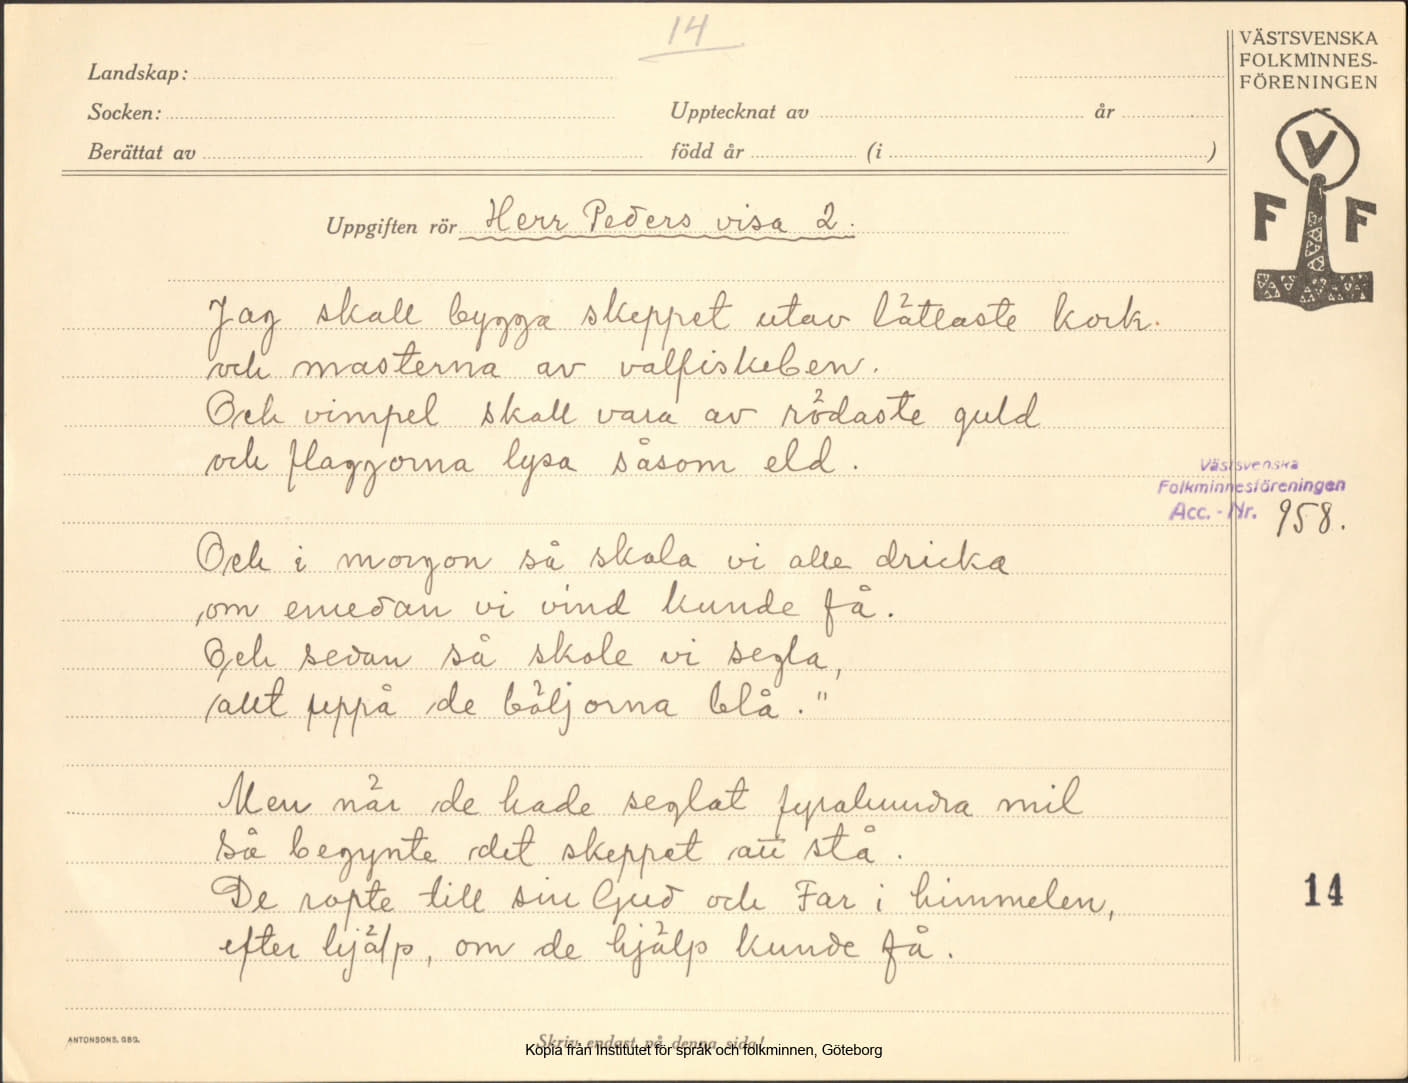 14
Landskap:
Socken:
Upptecknat av
år
Berättat av
född år
(i
)
VÄSTSVENSKA
FOLKMINNES-
FÖRENINGEN
V
F F
Uppgiften rör Herr Peders visa 2.
Jag skall bygga skeppet utav lättaste kork
och masterna av valfiskeben.
Och vimpel skall vara av rödaste guld
och flaggorna lysa såsom eld.
Västsvenska
Folkminnesföreningen
Acc.-Nr. 958.
Och i morgon så skola vi alla dricka
om emedan vi vind kunde få.
Och sedan så skole vi segla,
allt uppå de böljorna blå."
Men när de hade seglat fyrahundra mil
Så begynte det skeppet att stå.
De ropte till sin Gud och Far i himmelen,
efter hjälp, om de hjälp kunde få.
14
ANTONSONS, GBG.
Skriv endast på denna sida!
Kopia från Institutet för språk och folkminnen, Göteborg